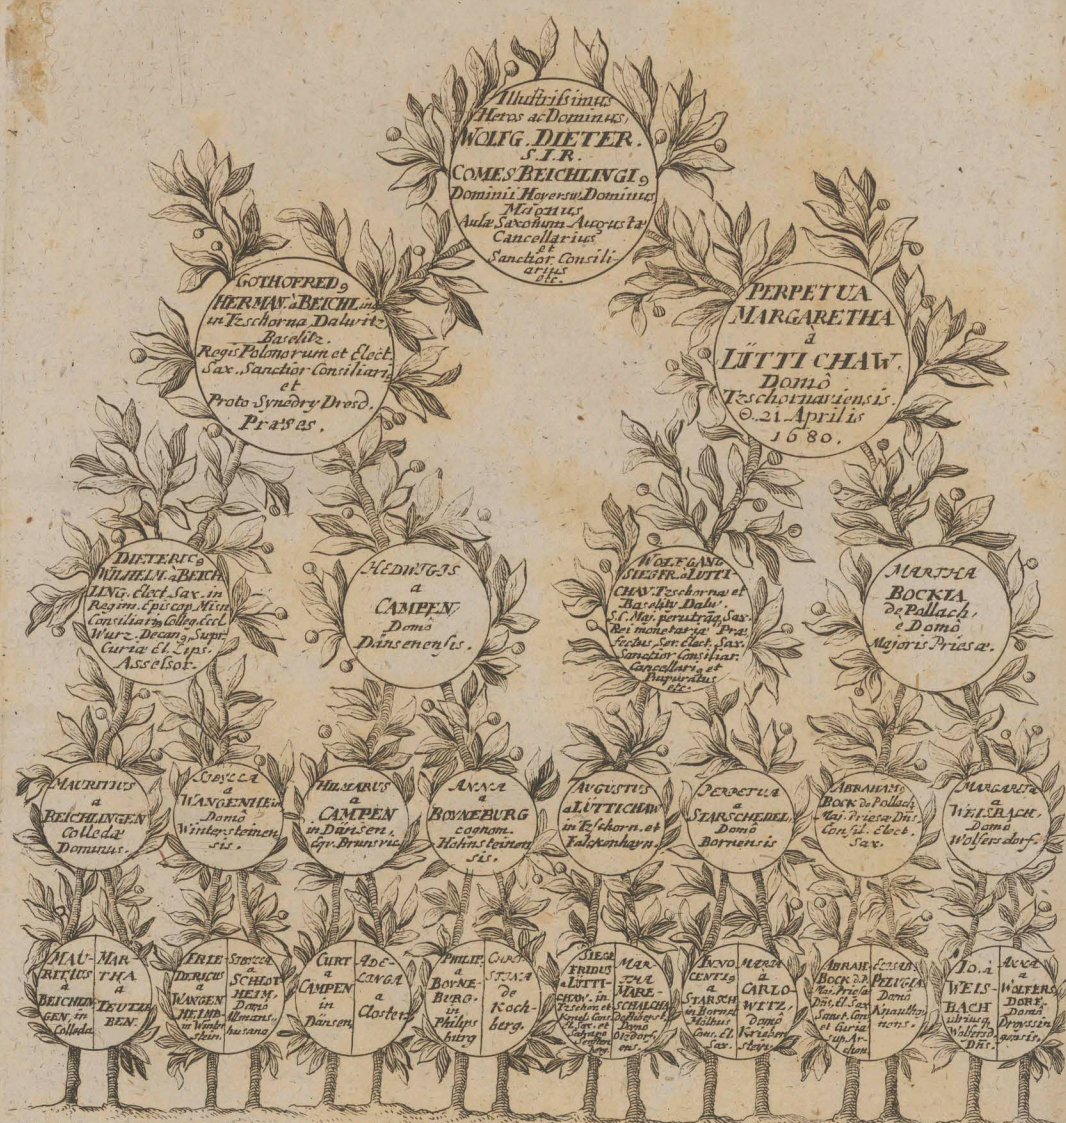 Illustrissimus
Heros ac Dominus,
WOLFG. DIETER.
S.I.R.
COMES BEICHLINGI9
Dominii Hoyersw. Dominus
Magnus
Aulæ Saxonum Augustæ
Cancellarius
et
Sanctior Consili-
arius
etc.
GOTHOFRED9
HERMAN. à BEICHLing
in Tzschorna Dalwitz
Baselitz.
Regis Polonorum et Elect.
Sax. Sanctior Consiliari9
et
Proto Synedry Dresd.
Præses.
PERPETUA
MARGARETHA
à
LÜTTICHAW.
Domô
Tzschornariensis.
21 Aprilis
1680.
DIETERIC9
WILHELM. à BEICH
LING. Elect. Sax. in
Regim. Episcop. Misn
Consiliari9 Colleg. Eccl.
Wurz. Decan9, Supr.
Curiæ El. Lips.
Assessor.
HEDWIGIS
a
CAMPEN
Domô
Dänsenensis.
WOLFGANG
SIEGFR. à LÜTTI-
CHAV. Tzschornæ et
Baselitz. Dalw.
S.C. Maj. perutrâq. Sax.
Rei monetariæ Præ
fectus, Ser. Elect. Sax.
Sanctior Consiliar.
Cancellari9 et
Purpuratus
etc.
MARTHA
BOCKIA
de Pollach,
e Domô
Majoris Priesæ.
MAURITIUS
a
BEICHLINGEN
Colledæ
Dominus.
SIBYLLA
a
WANGENHEim
Domô
Wintersteinen
sis.
HILMARUS
a
CAMPEN
in Dänsen,
Cgr. Brunsvic.
ANNA
a
BOYNEBURG
cognom.
Hohnsteinen
sis.
AUGUSTUS
a LÜTTICHAW
in Tzschorn. et
Falckenhayn.
PERPETUA
a
STARSCHEDEL,
Domô
Bornensis
ABRAHAM9
BOCK de Pollach
Maj. Priesæ Dns.
Consil. Elect.
Sax.
MARGARETA
a
WEISBACH,
Domô
Wolfersdorf.
MAU-
RITIUS
a
BEICHLIN
GEN, in
Colleda
MAR-
THA
a
TEUTLE
BEN.
FRIE
DERICUS
a
WANGEN
HEIMB
in Winter
stein.
SIBYLLA
a
SCHLOT
HEIM,
Domô
Allmens-
husana
CURT
a
CAMPEN
in
Dänsen
ADE-
LINGA
a
Closter
PHILIP.
a
BOYNE-
BURG.
in
Philips
burg
CHRI-
STINA
de
Koch-
berg.
SIEGE
FRIDUS
a LÜTTI-
CHAW. in
MAR-
THA
MARE-
SCHALCHA
de Biberst.
Domô
ens.
INNO
CENTI9
a
STARSCH
in Borna
Mölbus
Cons. El.
Sax.
MARIA
a
CARLO-
WITZ,
domô
Kriebenstein
ABRAH.
BOCK. d. P.
Maj. Priesæ
Dn. El. Sax.
Sanct. Con
et Curiæ
sup. Ar-
chon.
ELISAB.
PFLUGIA
Domô
Knauthay-
nens.
IO. à
WEIS-
BACH
utrius q.
in
Wolfersd.
Dns.
ANNA
a
WOLFERS
DORF.
Domô
Droyssin-
gensis.